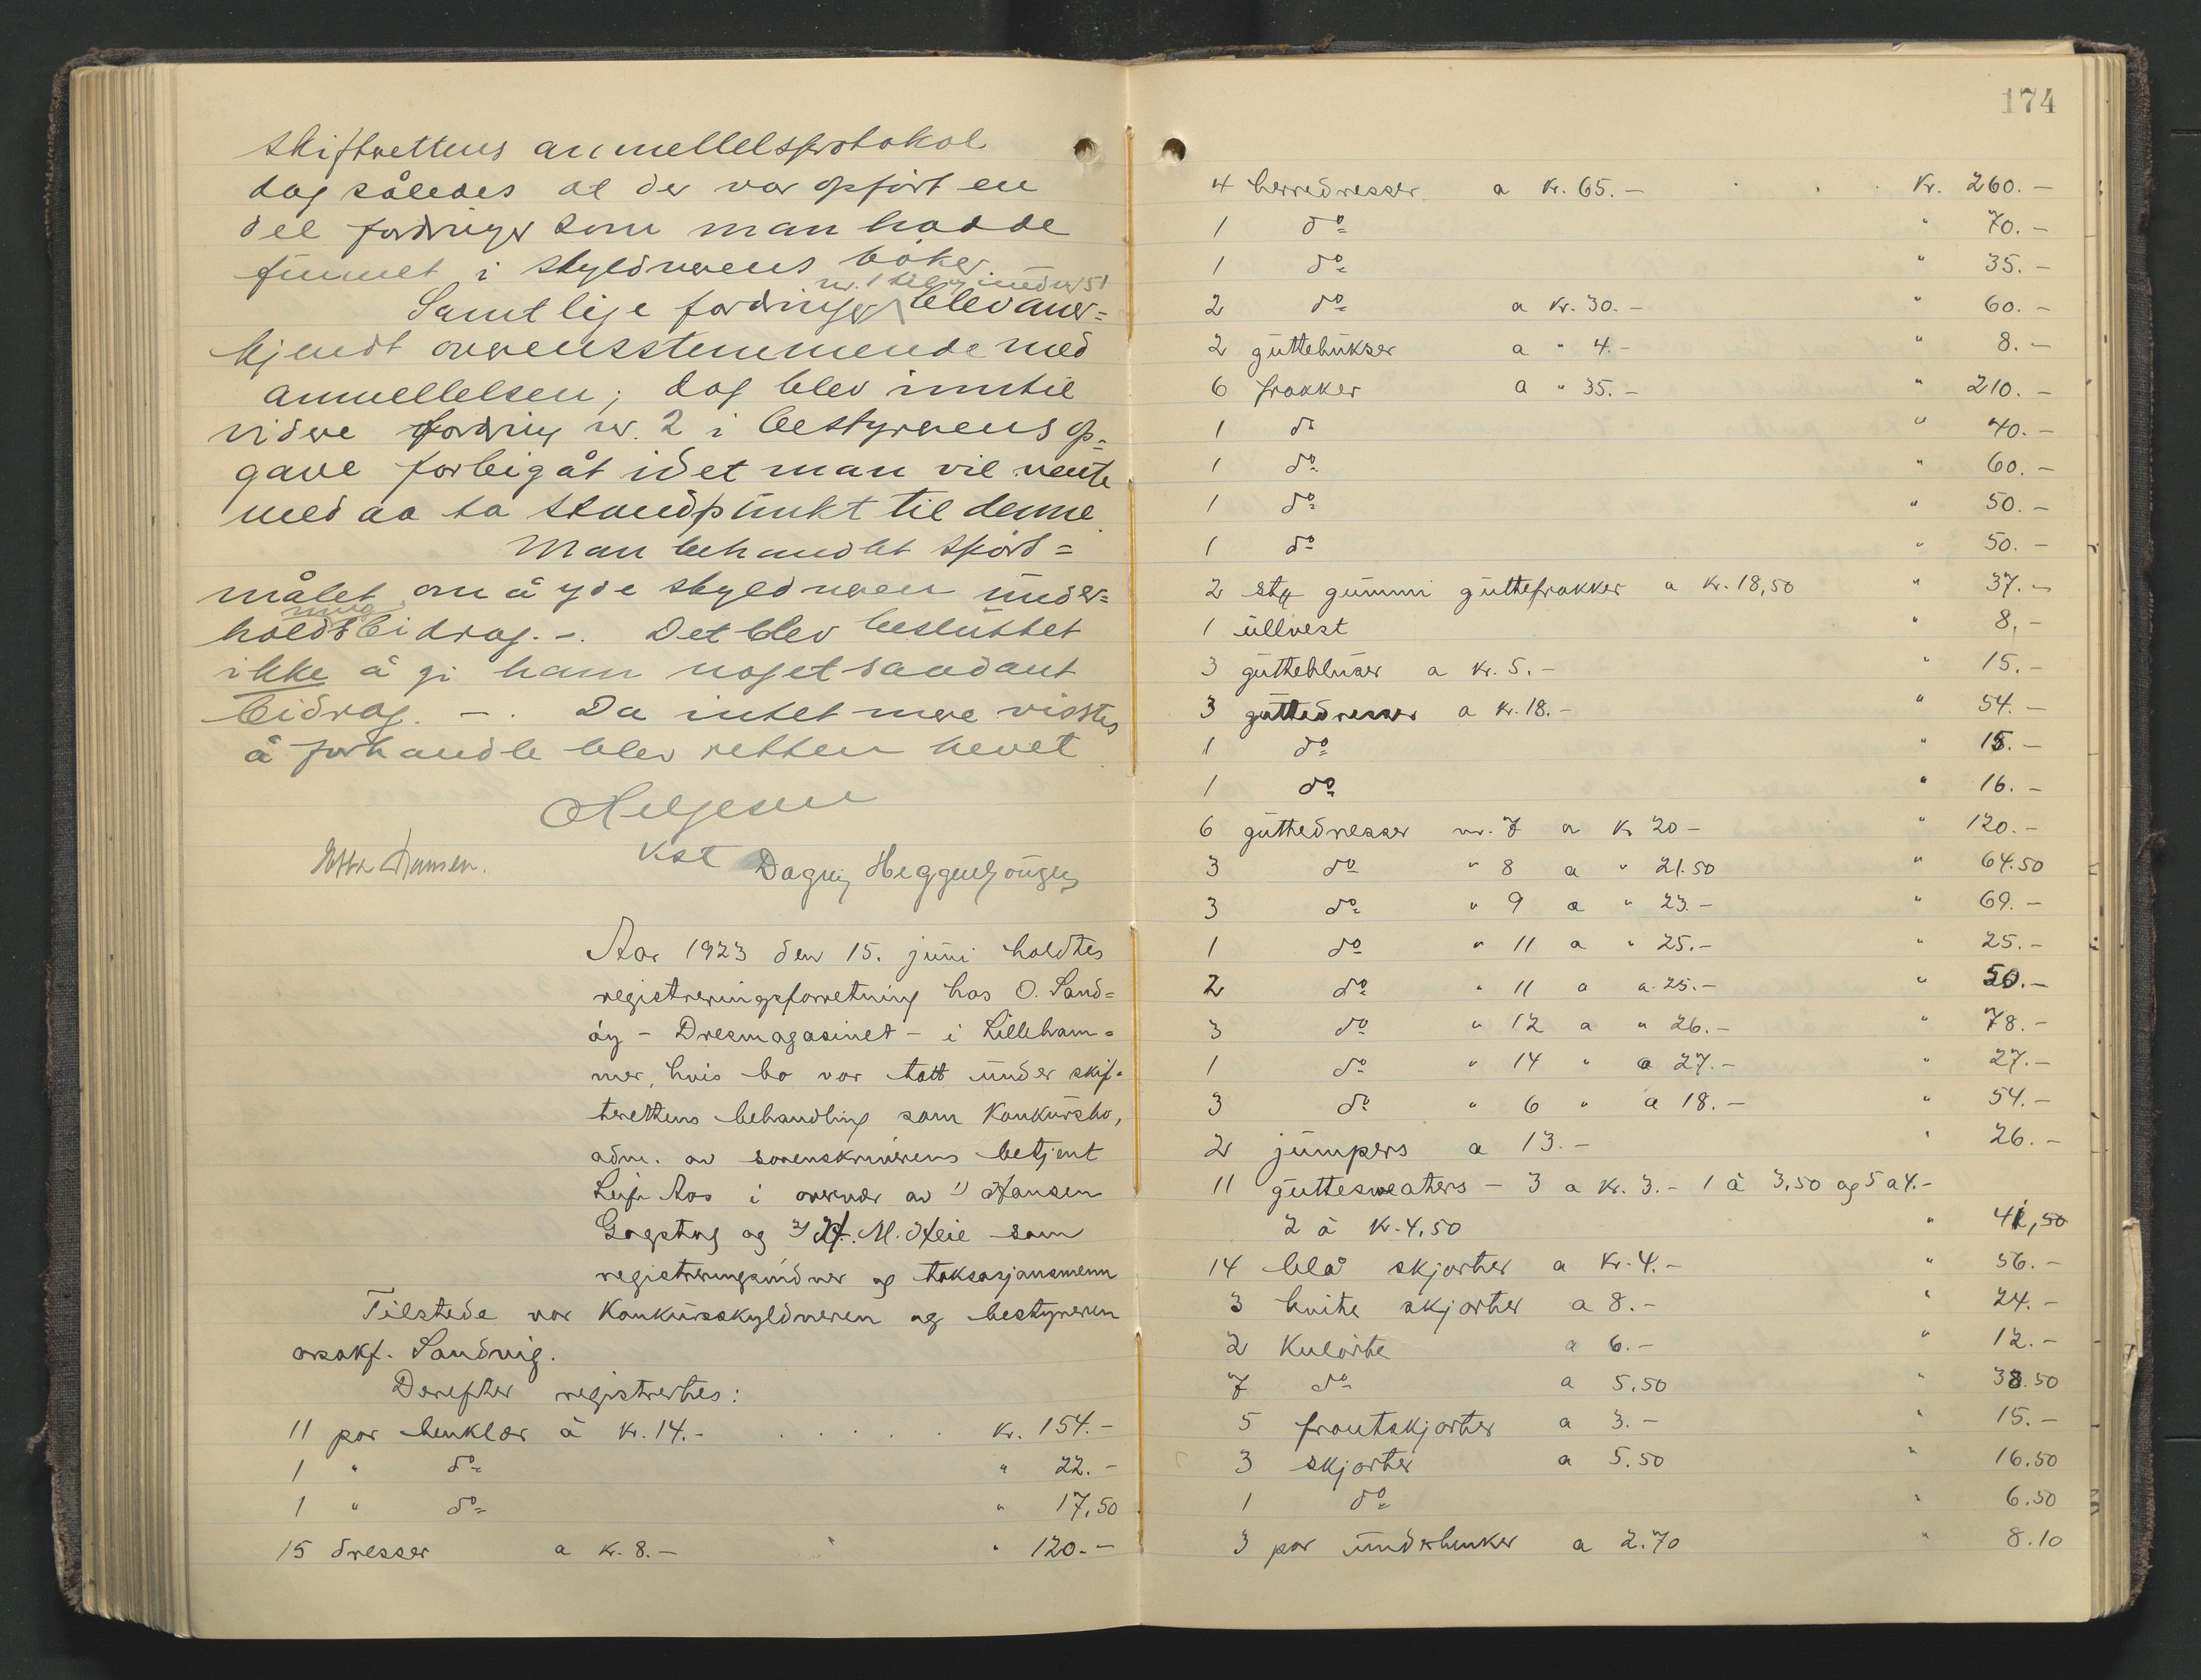 skifterettens anmellelsprotokol
dog således at der var opført en
del fordringer som man hadde
funnet i skyldnerens bøker.
nr. 1 til og med nr 51
Samtlige fordringer blev aner=
kjendt overensstemmende med
anmellelsen; dog blev inntil
videre fordring nr. 2 i bestyrerens op=
gave forbigåt idet man vil vente
med aa ta standpunkt til denne.
Man behandlet spørs=
målet om å yde skyldneren under=
holdsbidrag. -. Det blev besluttet
ikke å gi ham noget saadant
bidrag. -. Da intet mere visstes
å forhandle blev retten hevet
Helgesen
kst
Dagny
Aar 1923 den 15. juni holdtes
registreringsforretning hos O. Sand=
øy - Dresmagasinet - i Lilleham=
mer, hvis bo var tatt under skif=
terettens behandling som konkursbo,
adm. av sorenskriverens betjent
Leif Aas i overvær av 1) Hansen
og 2) H. M. Heie som
registreringsvidner og taksasjonsmenn
Tilstede var konkursskyldneren og bestyreren
orsakf. Sandvig.
Derefter registrertes:
11 par benklær à kr. 14.- . . . . . kr. 154.-
1 " do " 22.-
1 " do " 17,50
15 dresser a kr. 8.- " 120.-
174
4 herredresser a kr. 65.- . . . kr. 260.-
1 do " 70.-
1 do " 35.-
2 do a kr. 30.- " 60.-
2 guttebukser a " 4.- " 8.-
6 frakker a " 35.- " 210.-
1 do " 40.-
1 do " 60.-
1 do " 50.-
1 do " 50.-
2 stk gummi guttefrakker a kr. 18,50 " 37.-
1 ullvest " 8,-
3 guttebluser a kr. 5.- " 15.-
3 guttedresser a kr. 18.- " 54.-
1 do " 15.-
1 do " 16.-
6 guttedresser nr. 7 a kr 20- " 120.-
3 do " 8 a " 21.50 " 64.50
3 do " 9 a " 23.- " 69.-
1 do " 11 a " 25.- " 25.-
2 do " 11 a a 25.- " 50.-
3 do " 12 a " 26.- " 78.-
1 do " 14 " a 27.- " 27.-
3 do " 6 " a 18.- " 54.-
2 jumpers a 13.- " 26.-
11 guttesweaters - 3 a kr. 3.- 1 à 3,50 og 5 a 4.-
2 à kr. 4,50 " 41,50
14 blå skjorter a kr. 4.- " 56.-
3 hvite skjorter a 8.- " 24.-
2 kulørte a 6.- " 12.-
7 do a 5,50 " 38.50
5 frontskjorter a 3.- " 15.-
3 skjorter a 5.50 " 16.50
1 do " 6.50
3 par underbukser a 2.70 " 8.10